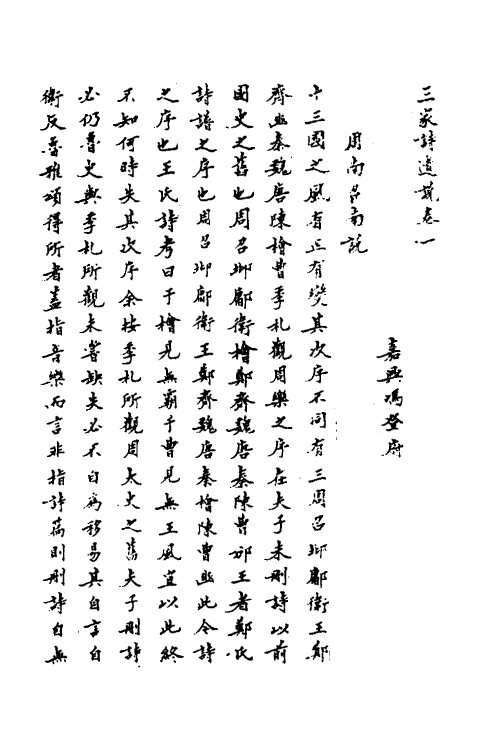 三家詩遺說卷一
嘉興馮登府
周南召南說
十三國之風有正有變其次序不同有三周召邶鄘衛王鄭
齊豳秦魏唐陳檜曹季札觀周樂之序在夫子未刪詩以前
國史之舊也周召邶鄘衛檜鄭齊魏唐秦陳曹豳王者鄭氏
詩譜之序也周召邶鄘衛王鄭齊魏唐秦陳檜曹豳此今詩
之序也王氏詩考曰于檜見無霸于曹見無王風宜以此終
不知何時失其次序余按季札所觀周太史之舊夫子刪詩
必仍魯史與季札所觀未嘗缺失必不自為移易其自言自
衛反魯雅頌得所者蓋指音樂而言非指詩篇則刪詩自無